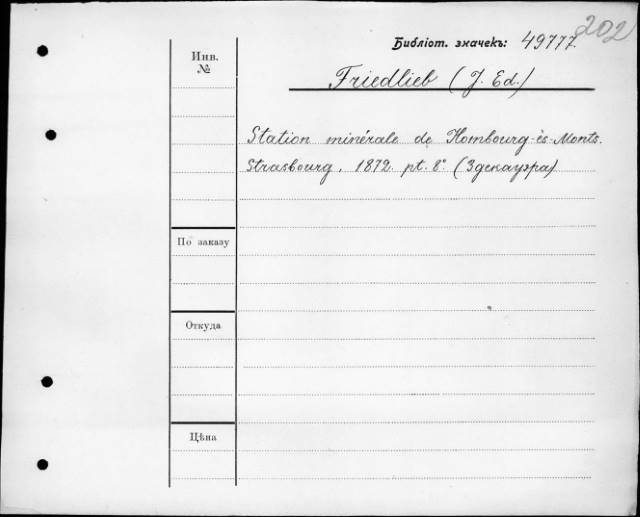 202
Библіот. значекъ: 49777
Инв.
№
Friedlieb (J. Ed.)
Station minérale de Hombourg-ès-Monts.
Strasbourg, 1872. pt. 8° (Здекауэра)
По заказу
Откуда
Цѣна